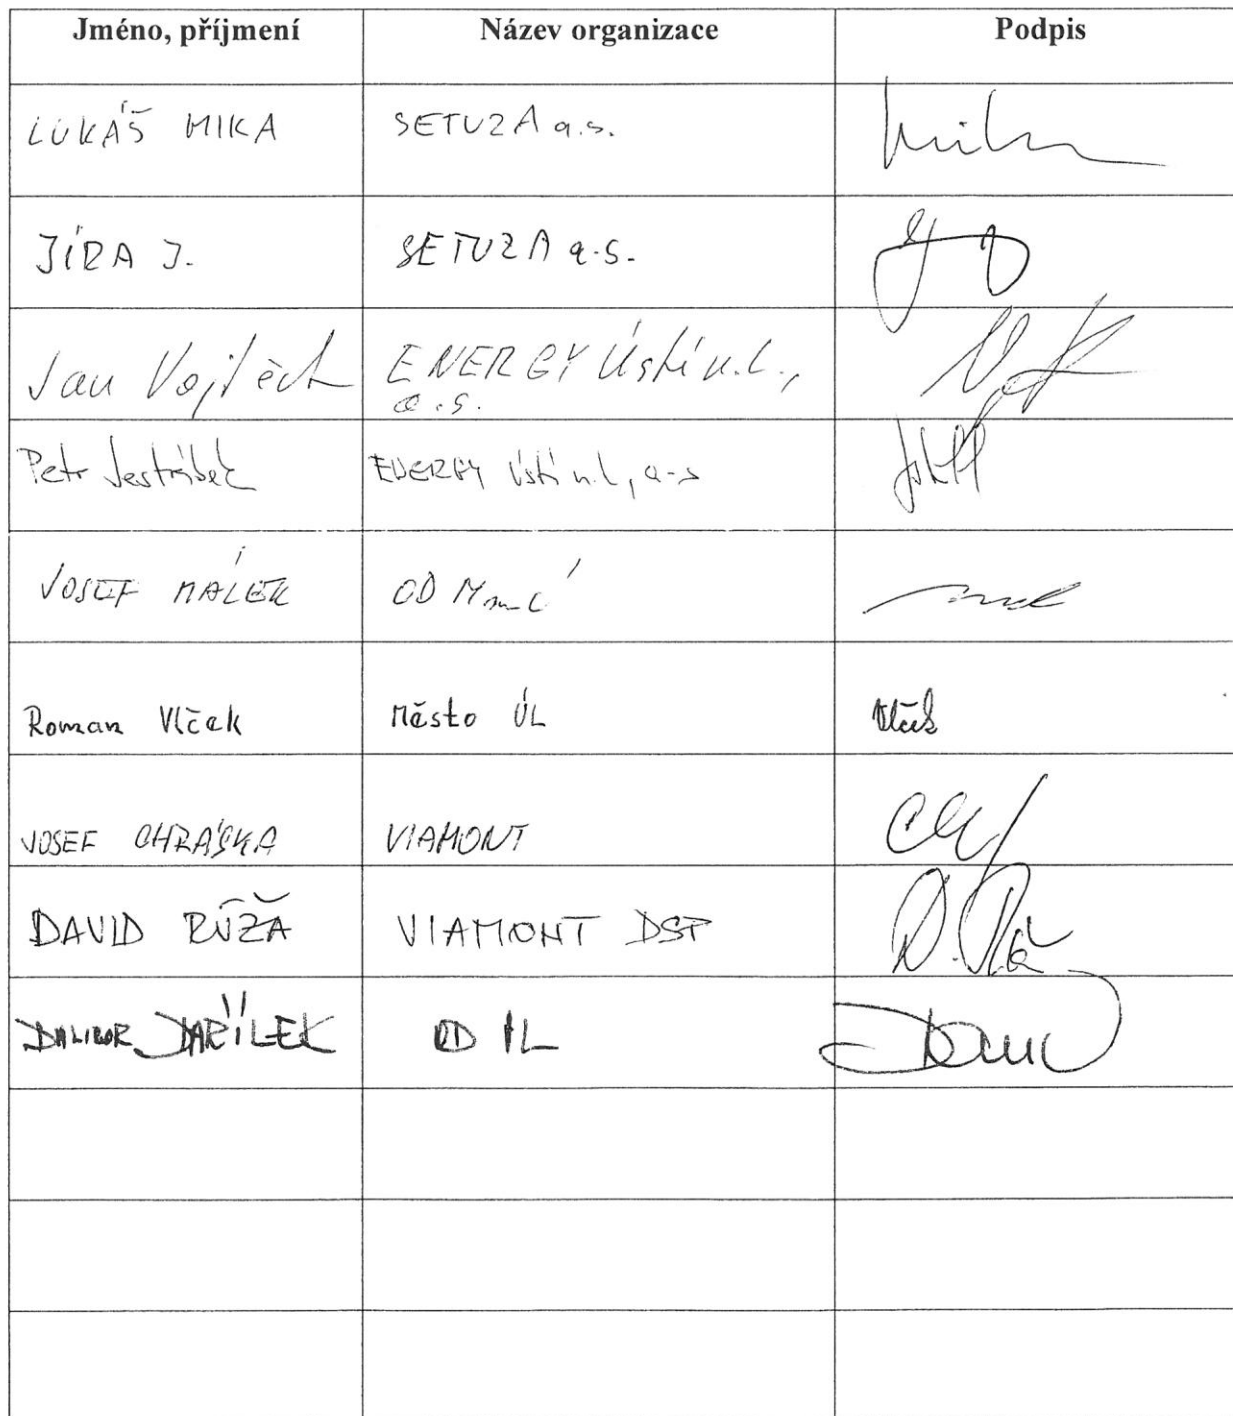 Jméno, příjmení Název organizace Podpis
LUKÁŠ MIKA SETUZA a.s.
JÍRA J. SETUZA a.s.
Jan Vojtěch ENERGY Ústí n.L.,
a.s.
Petr Jestřábek ENERGY Ústí n.L, a-s
JOSEF MÁLEK OD
Roman Vlček Město ÚL Vlček
JOSEF CHRÁSKA VIAMONT
DAVID RŮŽA VIAMONT DSP
DALIBOR DAŘÍLEK